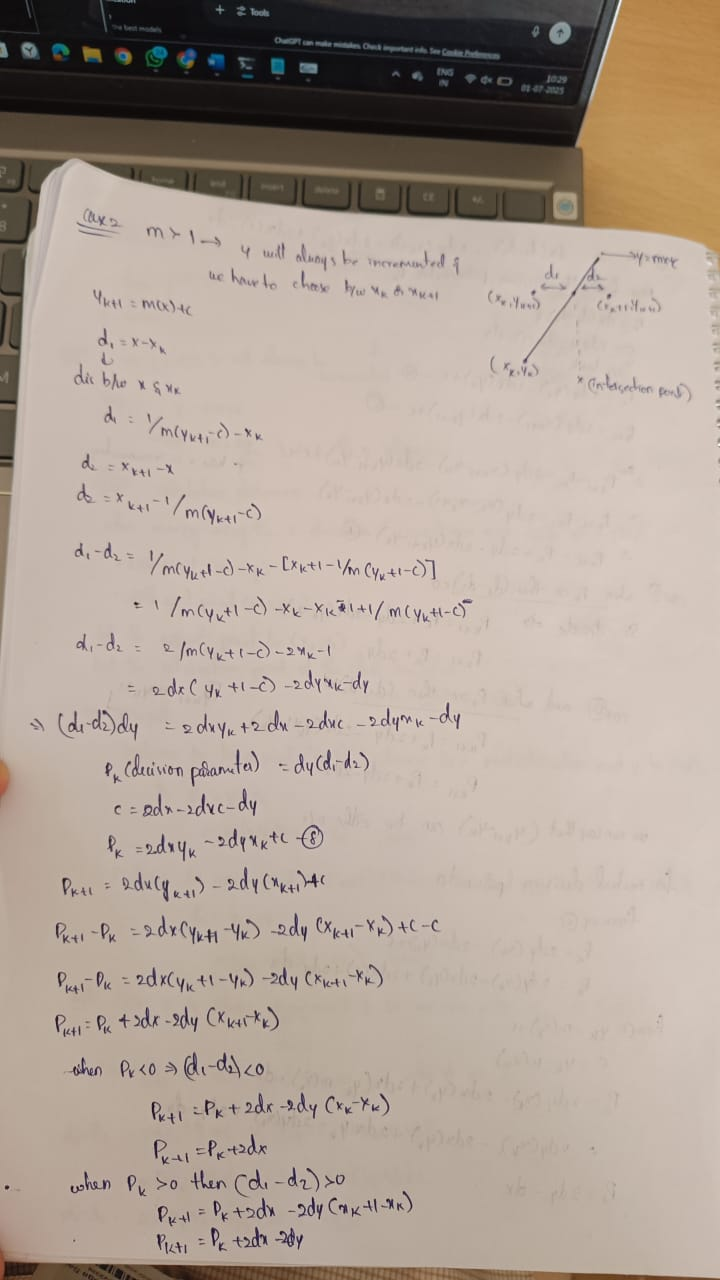 + Tools
the best models
ChatGPT can make mistakes. Check important info. See Cookie Preferences
ENG
IN
10:29
01-07-2025
home
end
insert
delete
CE
+/-
8
M
Case 2 m > 1 → y will always be incremented &
we have to choose b/w xk or xk+1
y=mx+c
d1 d2
(xk, yk+1) (xk+1, yk+1)
(xk, yk)
x (intersection point)
yk+1 = m(x)+c
d1 = x-xk
↓
dis b/w x & xk
d1 = 1/m(yk+1-c)-xk
d2 = xk+1-x
d2 = xk+1-1/m(yk+1-c)
d1-d2 = 1/m(yk+1-c)-xk-[xk+1-1/m(yk+1-c)]
= 1/m(yk+1-c)-xk-xk-1+1/m(yk+1-c)
d1-d2 = 2/m(yk+1-c)-2xk-1
= 2dx(yk+1-c)-2dyxk-dy
⇒ (d1-d2)dy = 2dxyk+2dx-2dxc-2dyxk-dy
Pk (decision parameter) = dy(d1-d2)
c = 2dx-2dxc-dy
Pk = 2dxyk-2dyxk+c -⑧
Pk+1 = 2dx(yk+1)-2dy(xk+1)+c
Pk+1-Pk = 2dx(yk+1-yk)-2dy(xk+1-xk)+c-c
Pk+1-Pk = 2dx(yk+1-yk)-2dy(xk+1-xk)
Pk+1 = Pk+2dx-2dy(xk+1-xk)
when Pk<0 ⇒ (d1-d2)<0
Pk+1 = Pk+2dx-2dy(xk-xk)
Pk+1 = Pk+2dx
when Pk>0 then (d1-d2)>0
Pk+1 = Pk+2dx-2dy(xk+1-xk)
Pk+1 = Pk+2dx-2dy